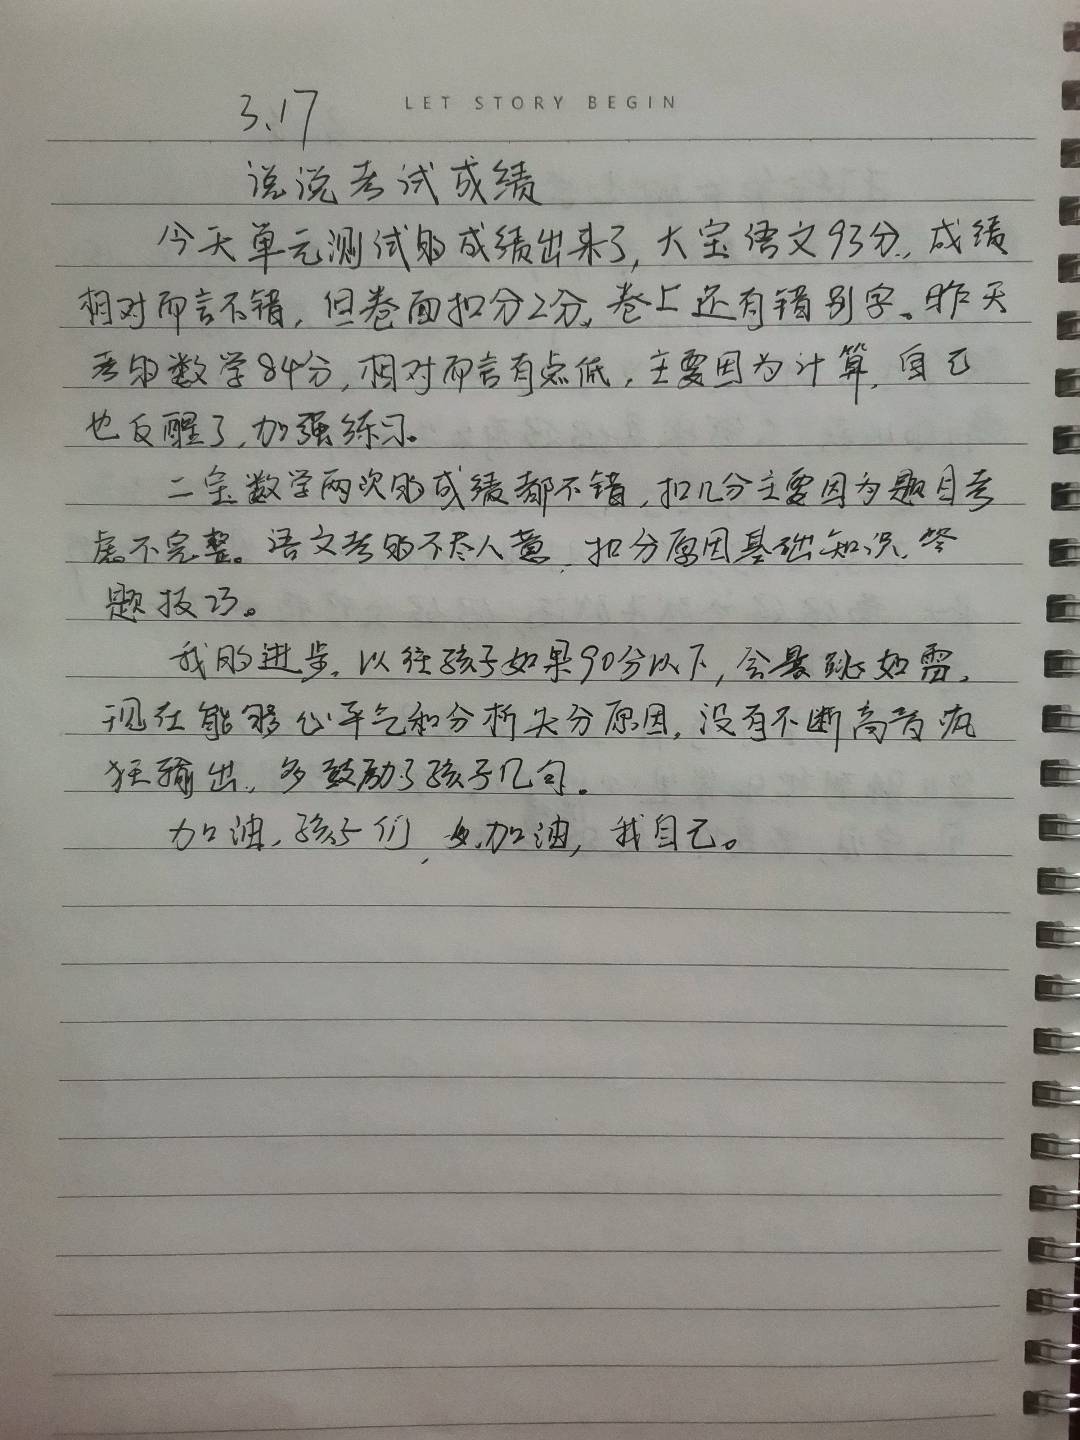 LET STORY BEGIN
3.17
说说考试成绩
今天单元测试的成绩出来了,大宝语文93分,成绩
相对而言不错,但卷面扣分2分,卷上还有错别字。昨天
考的数学84分,相对而言有点低,主要因为计算,自己
也反醒了,加强练习。
二宝数学两次的成绩都不错,扣几分主要因为题目考
虑不完整。语文考的不尽人意,扣分原因基础知识、答
题技巧。
我的进步,以往孩子如果90分以下,会暴跳如雷,
现在能够心平气和分析失分原因,没有不断高音疯
狂输出,多鼓励了孩子几句。
加油,孩子们,加油,我自己。